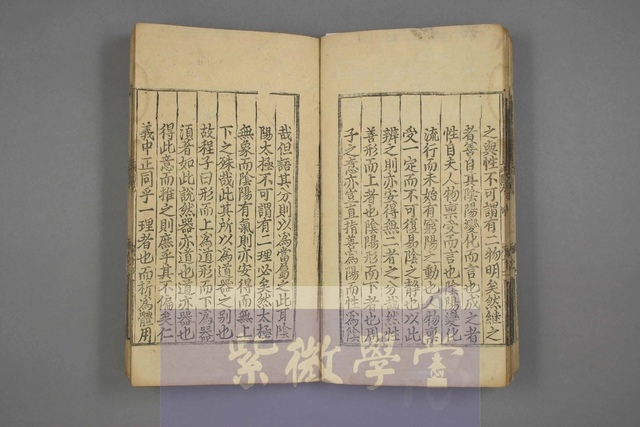 之與性不可謂有二物明矣然繼之
者善自其陰陽變化而言也成之者
性自夫人物稟受而言也陰陽變化
流行而未始有窮陽之動也人物稟
受一定而不可復易陰之靜也以此
辨之則亦安得無二者之分哉然性
善形而上者也陰陽形而下者也周
子之意亦豈直指善為陽而性為陰
哉但語其分則以為當屬之此耳陰
陽太極不可謂有二理必矣然太極
無象而陰陽有氣則亦安得而無上
下之殊哉此其所以為道器之別也
故程子曰形而上為道形而下為器
須著如此說然器亦道也道亦器也
得此意而推之則庶乎其不偏矣仁
義中正同乎一理者也而析為體用
紫微學堂